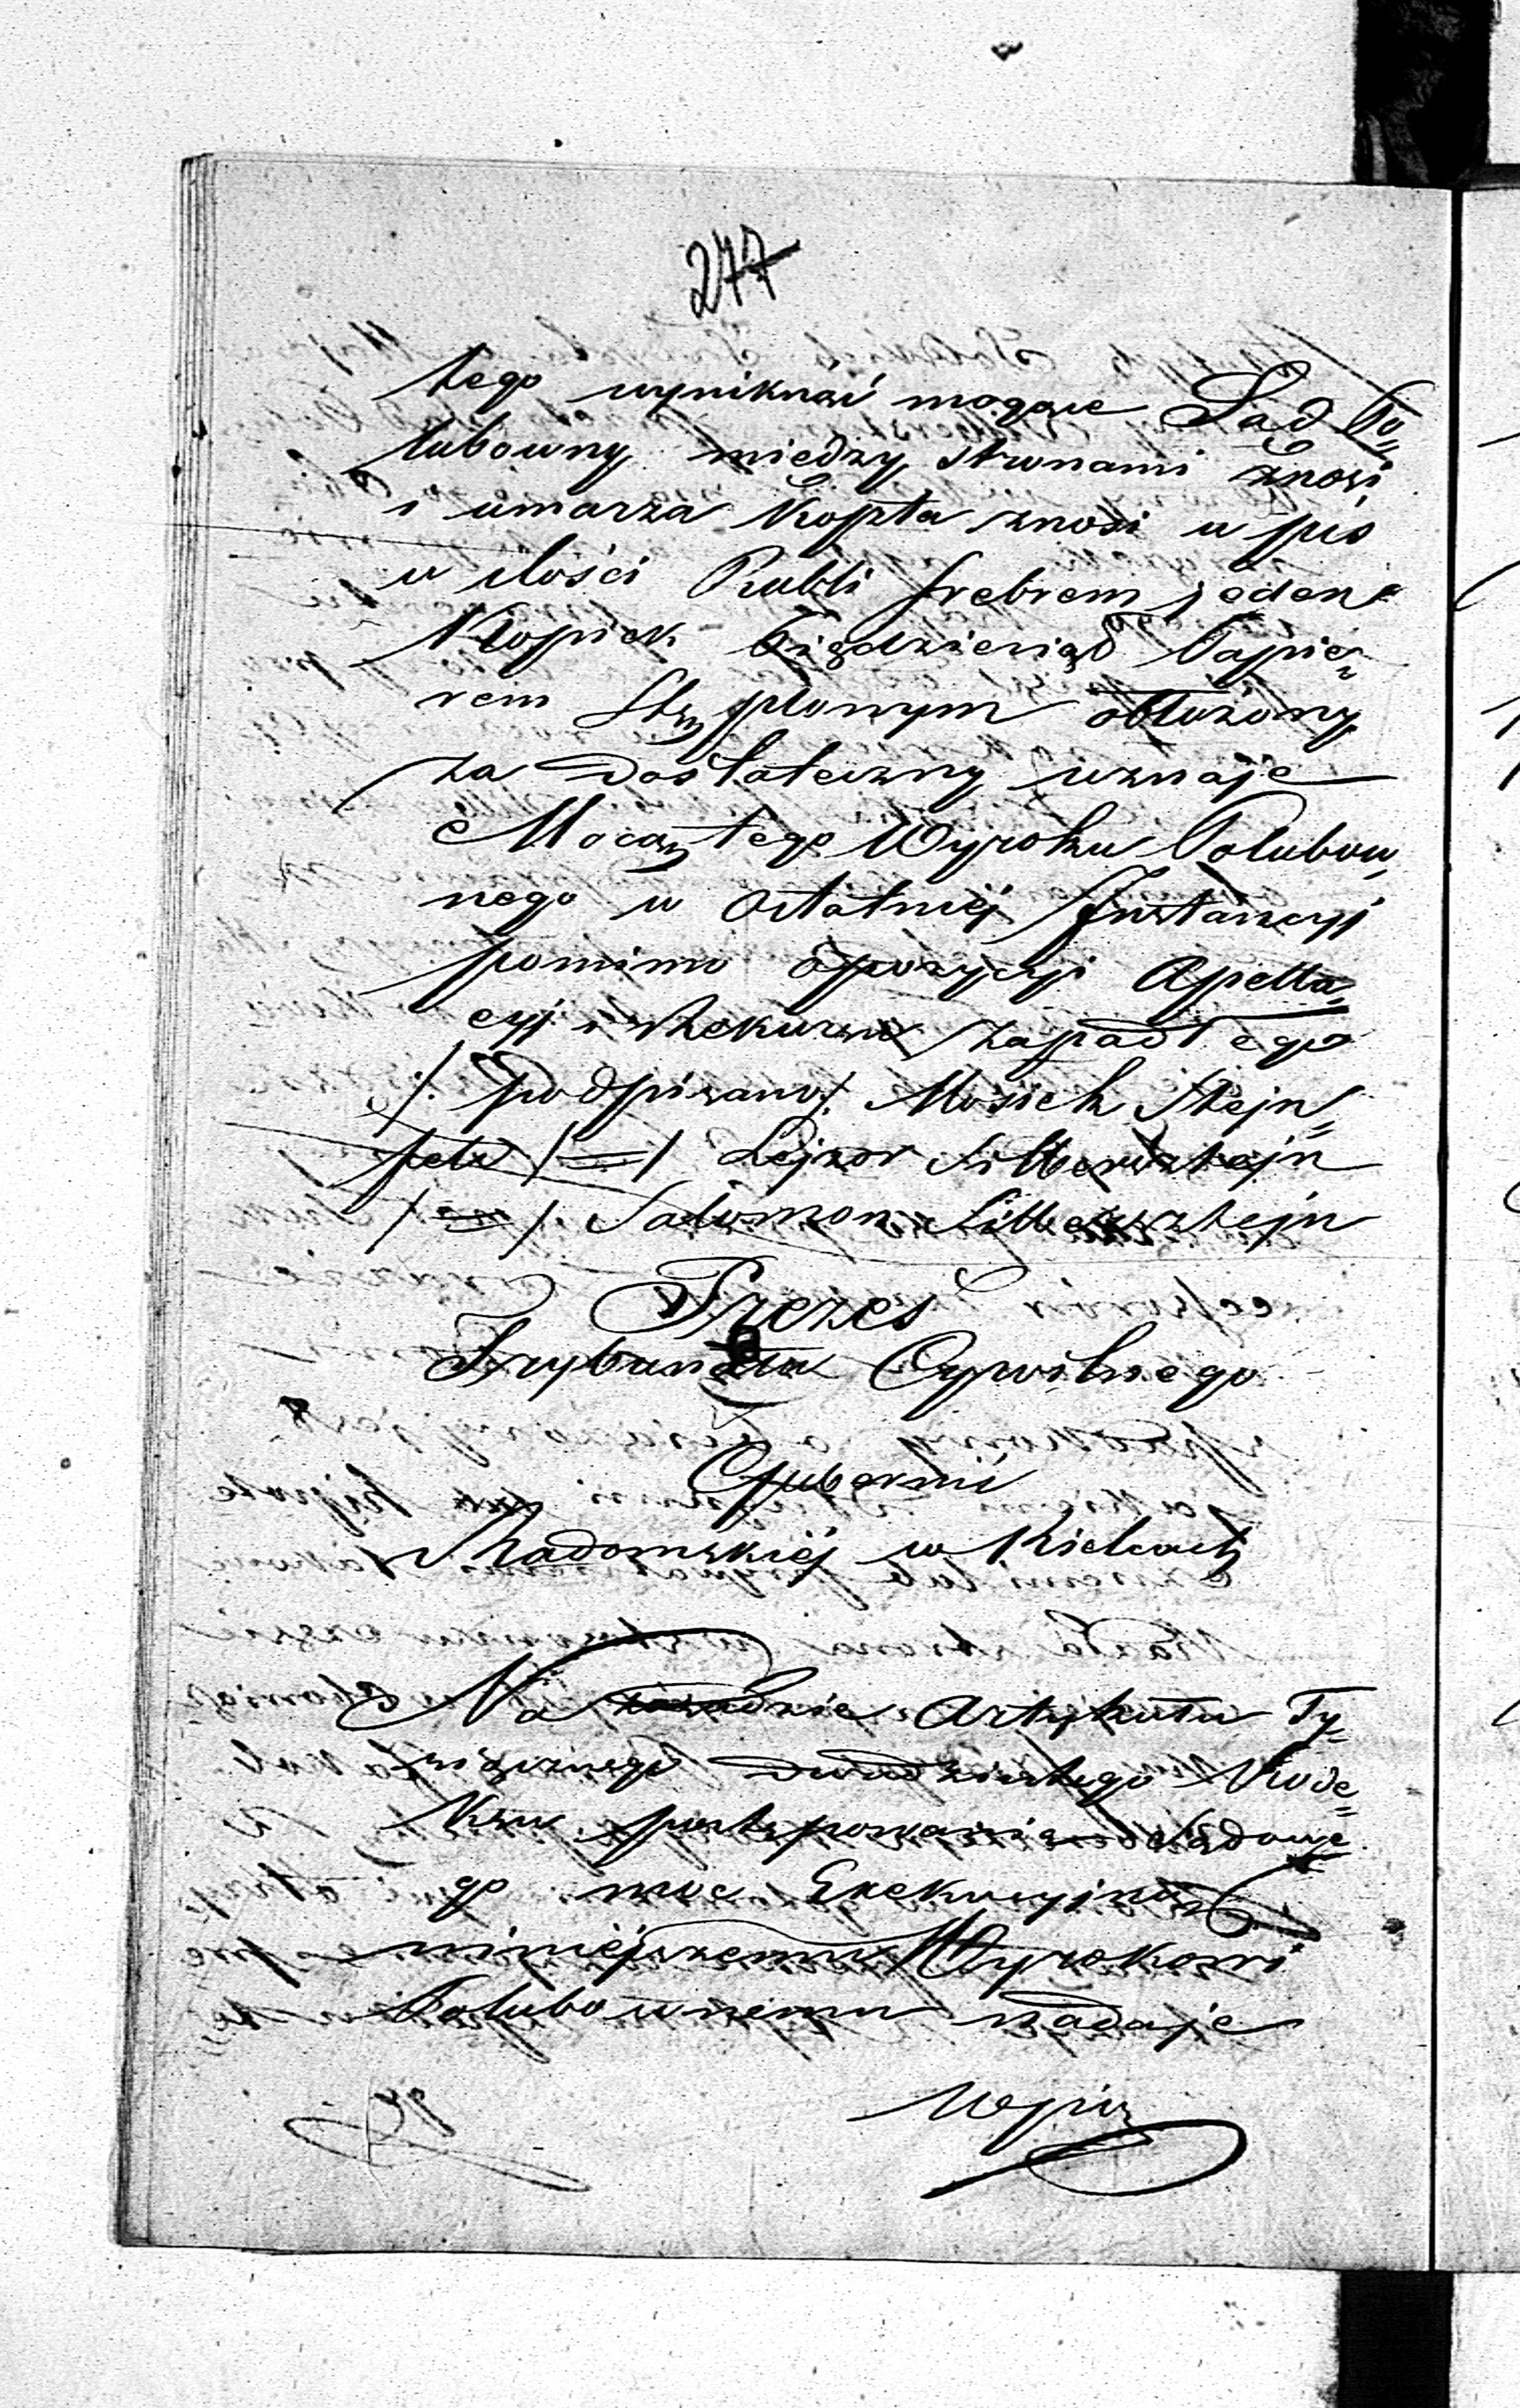 277
tego wyniknąć mogące Sąd Po=
lubowny między stronami znosi
i umarza Koszta znosi wpis
w ilości Rubli srebrem jeden
Kopiek Pięćdziesiąt Papie=
rem Stęplowym obłożony
za dostateczny uznaje
Mocą tego Wyroku Polubow=
nego w ostatniej Instancyi
pomimo opozycyi Apella=
cyi i Rekursu zapadłego
/: podpisano :/ Mosiek Sztejn=
/=/ Lejzor Silbersztejn
/=/ Salomon Silbersztejn
Prezes
Trybunału Cywilnego
Gubernii
Radomskiéj w Kielcach
Na zasadzie Artykułu Ty=
siącznego dwudziestego Kode=
ksu postępowania Sądowe=
go moc Exekucyjną
niniéjszemu Wyrokowi
Polubownemu nadaje